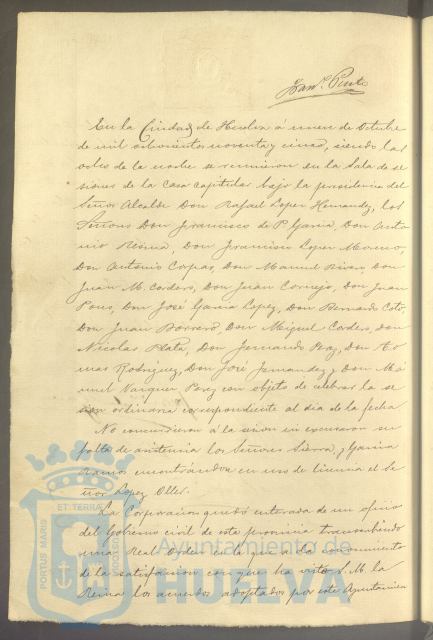 En la Ciudad de Huelva á nueve de Octubre
de mil ochocientos noventa y cinco, siendo las
ocho de la noche se reunieron en la Sala de se
siones de la Casa capitular bajo la presidencia del
Señor Alcalde Don Rafael Lopez Hernandez, los
Señores Don Francisco de P. Garcia, Don Anto
nio Mesina, Don Francisco Lopez Moreno,
Don Antonio Corpas, Don Manuel Rivas, Don
Juan M. Cordero, Don Juan Cornejo, Don Juan
Pons, Don José Garcia Lopez, Don Bernardo Coto,
Don Juan Borrero, Don Miguel Cordero, Don
Nicolas Plata, Don Fernando Paz, Don To
mas Rodriguez, Don José Fernandez y Don Ma
nuel Vazquez Perez con objeto de celebrar la se
sion ordinaria correspondiente al dia de la fecha
No concurrieron á la sesion su
falta de asistencia los Señores Sierra, y Garcia
Ramos encontrándose en uso de licencia el Se
ñor Lopez Oller.
La Corporacion quedó enterada de un oficio
del Gobierno civil de esta provincia transcribiendo
una Real Orden en la que se da conocimiento
de la satisfaccion con que ha visto S. M. la
Reina los acuerdos adoptados por este Ayuntamien
PORTUS MARIS
ET TERRAE
CUSTODIA
Ayuntamiento de
HUELVA